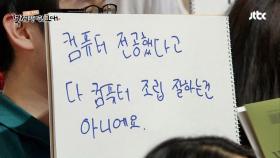 jtbc
컴퓨터 전공했다고
다 컴퓨터 조립 잘하는건
아니에요.